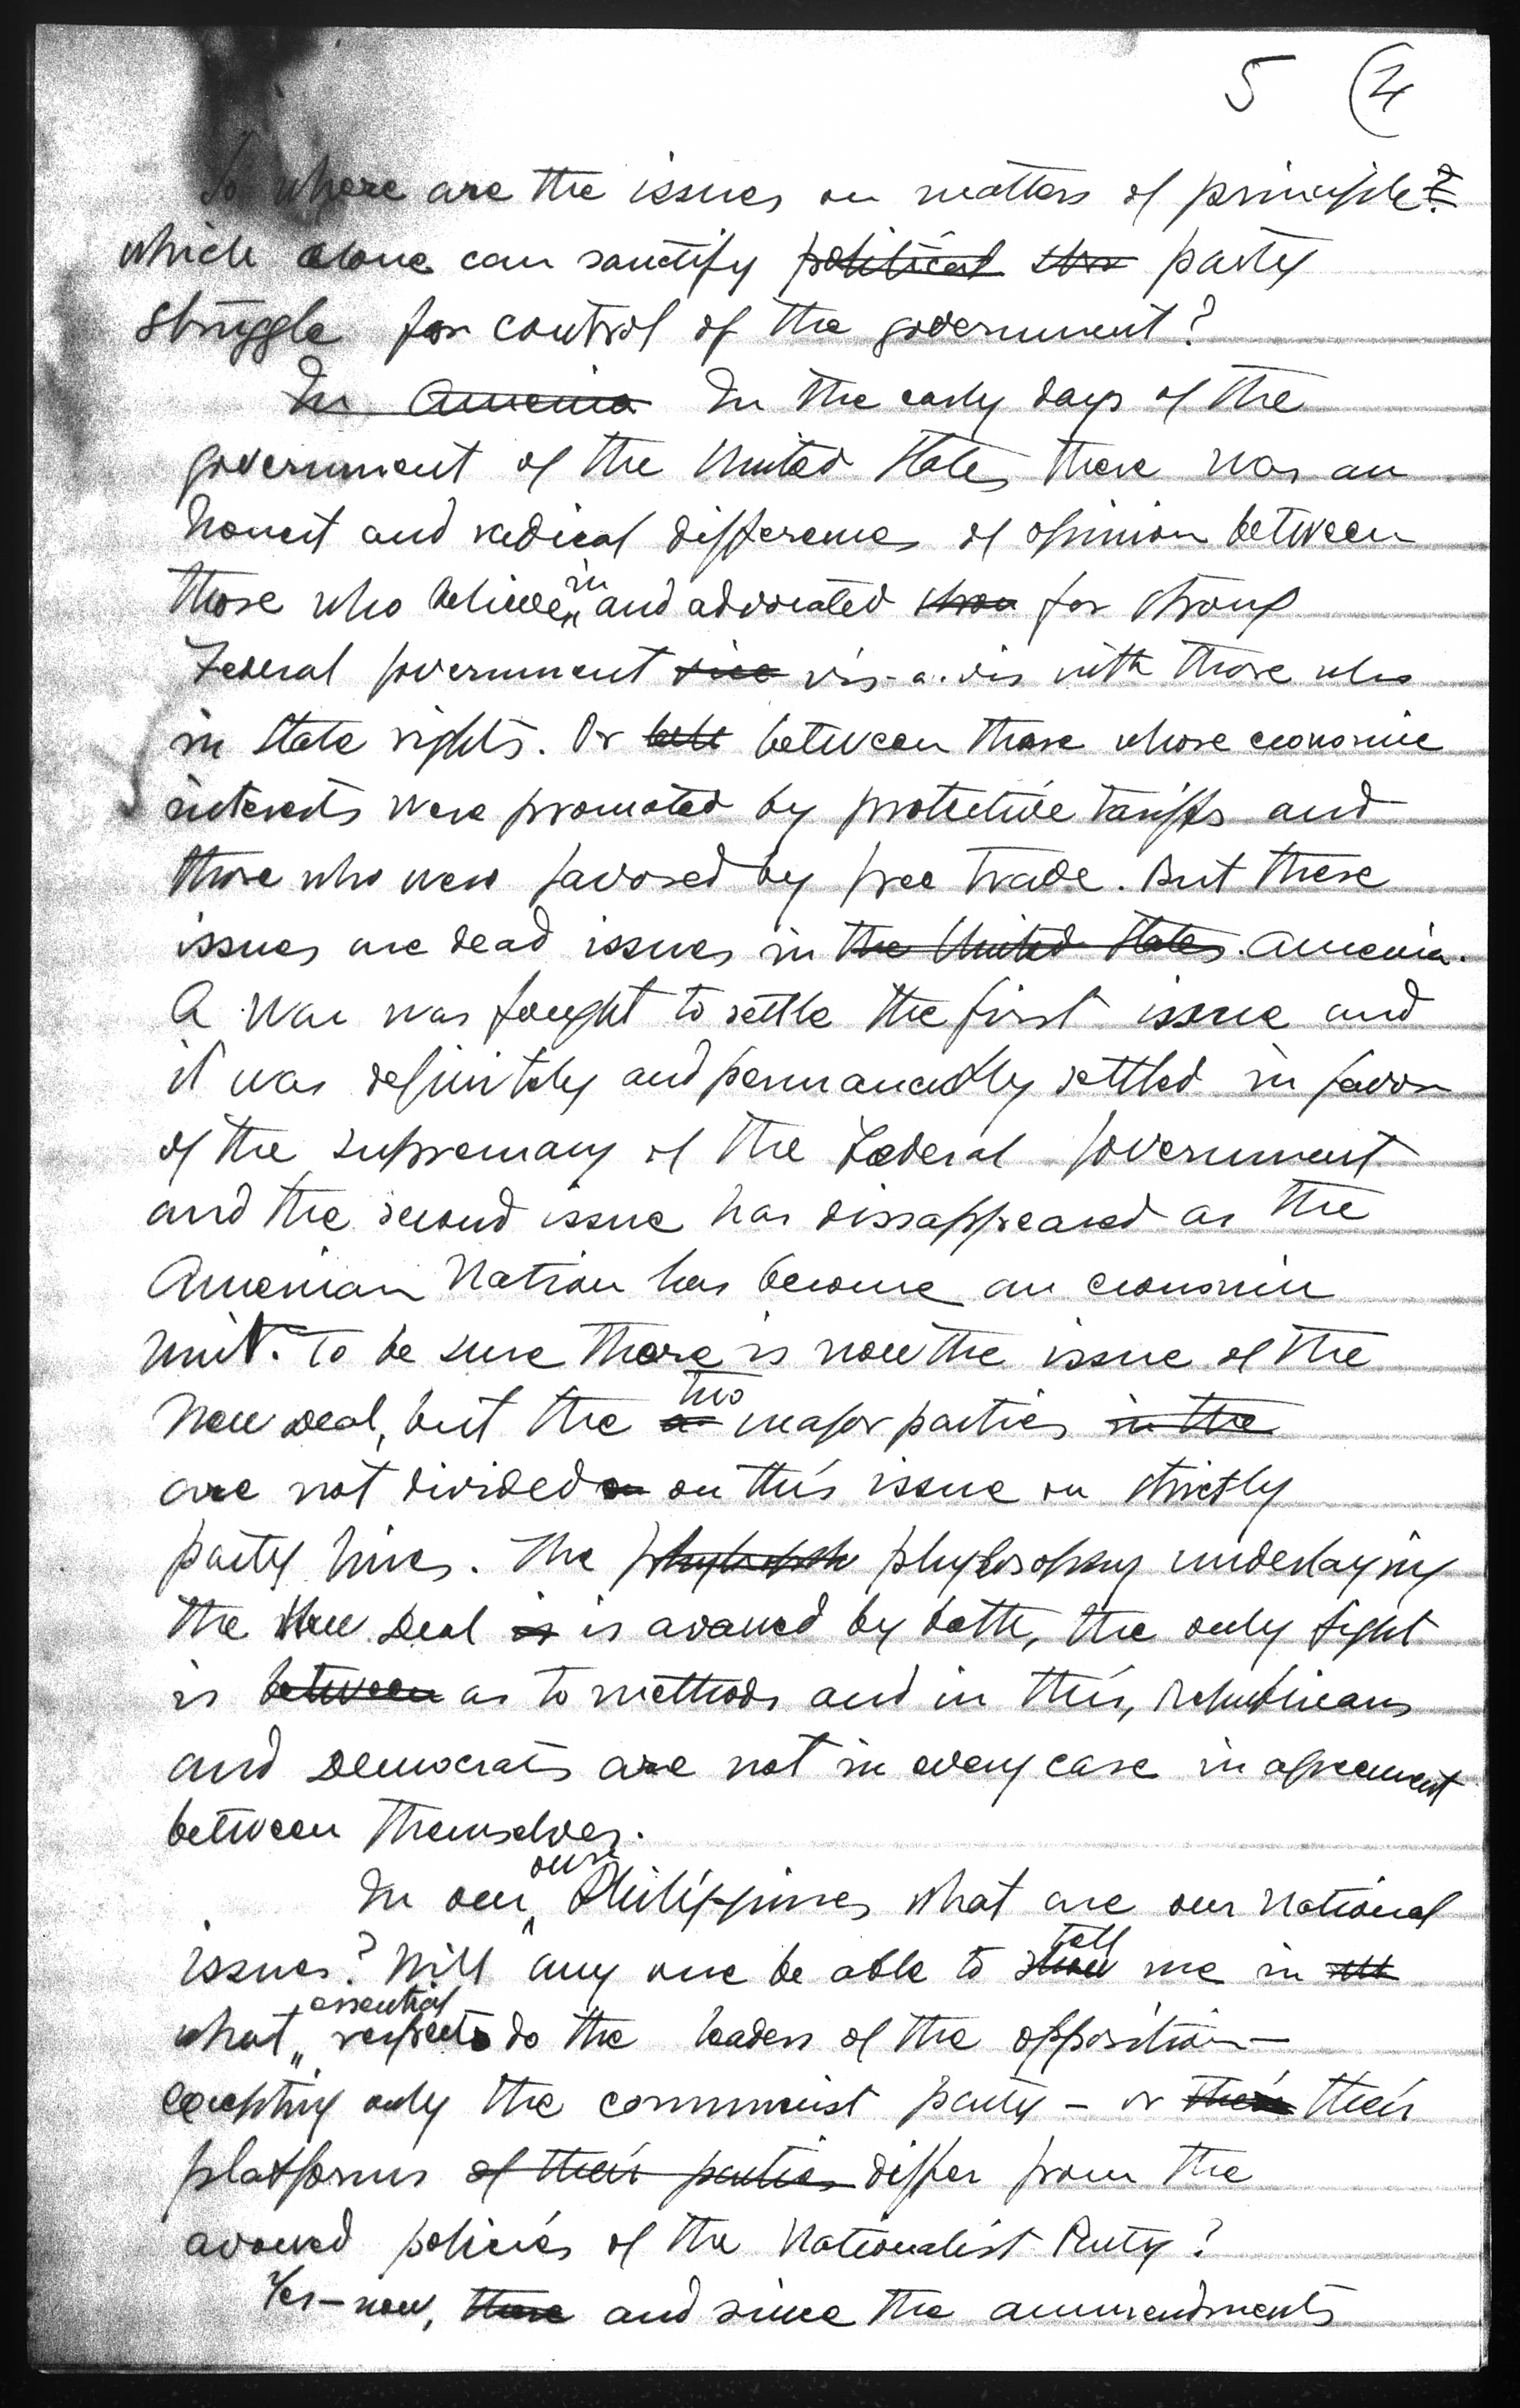 5 (4
So where are the issues on matters of principle?
which alone can sanctify political party
struggle for control of the government?
In America In the early days of the
government of the United States there was an
honest and radical differences of opinion between
those who believe in and advocated for strong
Federal government vis-a-vis with those who
in State rights. Or between those whose economic
interests were promoted by protective tariffs and
those who were favored by free trade. But these
issues are dead issues in the United States. America.
A War was fought to settle the first issue and
it was definitely and permanently settled in favor
of the supremacy of the Federal government
and the second issue has dissappeared as the
American Nation has become an economic
unit. To be sure there is now the issue of the
New Deal, but the two major parties in the
are not divided on on this issue on strictly
party lines. The phylosophy underlaying
the New Deal is is avowed by both, the only fight
is between as to methods and in this, Republicans
and Democrats are not in every case in agreement
between themselves.
In our Philippines what are our national
issues? Will any one be able to tell me in
what essential respects do the leaders of the opposition—
excepting only the communist party – or their their
platforms of their parties differ from the
avowed policies of the Nationalist Party?
Yes – now, there and since the ammendments